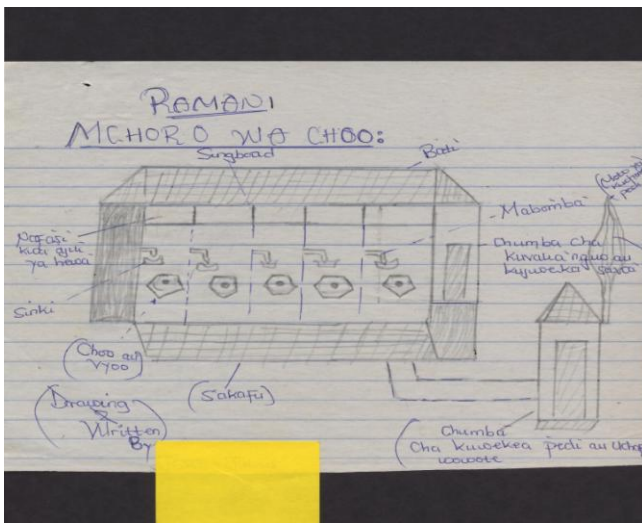 RAMANI
MCHORO WA CHOO:
Singboad
Bati
Mabomba
Nafasi
kwa ajili
ya hewa
Chumba cha
kuvalia nguo au
kujiweka sawa
Sinki
(Choo au
Vyoo)
(Sakafu)
(Drawing
&
Written
By
(Chumba
Cha kuwekea pedi au Uchaf
wowote